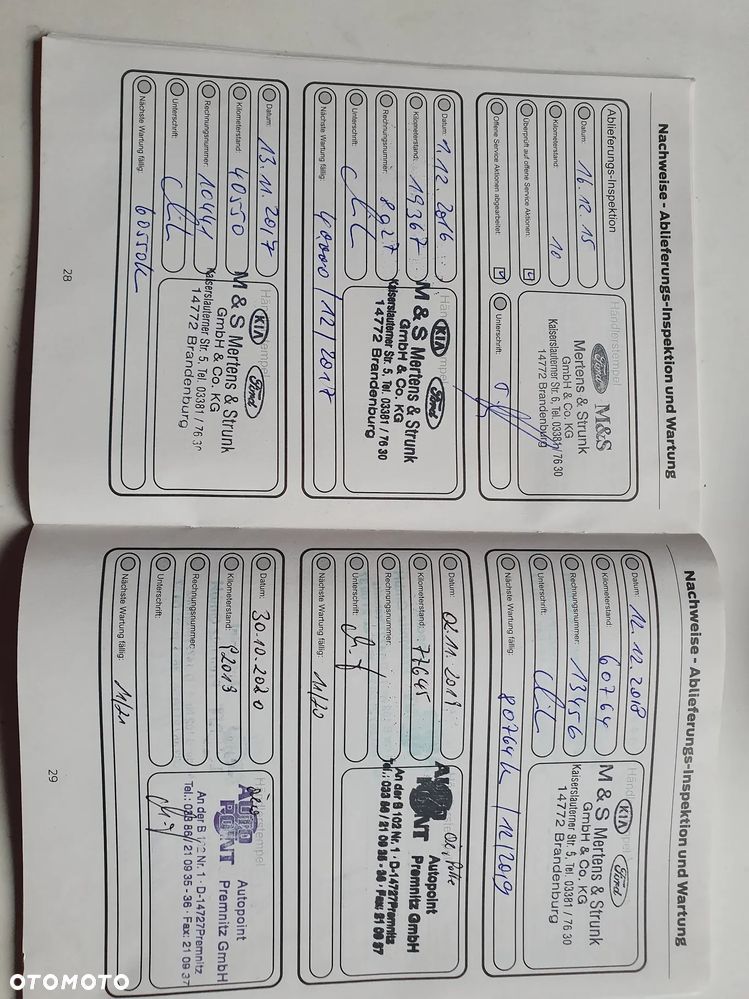 Nachweise - Ablieferungs-Inspektion und Wartung
Ablieferungs-Inspektion
Datum: 16.12.15
Kilometerstand: 10
Überprüft auf offene Service Aktionen:
Offene Service Aktionen abgearbeitet:
Unterschrift:
Händlerstempel
Ford M&S
Mertens & Strunk
GmbH & Co. KG
Kaiserslauterner Str. 6, Tel. 03381/76 30
14772 Brandenburg
Datum: 1.12.2016
Kilometerstand: 19367
Rechnungsnummer: 8927
Unterschrift:
Nächste Wartung fällig: 40000 / 12/2017
KIA Ford
M & S Mertens & Strunk
GmbH & Co. KG
Kaiserslauterner Str. 5, Tel. 03381 / 76 30
14772 Brandenburg
Datum: 13.11.2017
Kilometerstand: 40550
Rechnungsnummer: 10441
Unterschrift:
Nächste Wartung fällig: 60550k
Händlerstempel
KIA Ford
M & S Mertens & Strunk
GmbH & Co. KG
Kaiserslauterner Str. 5, Tel. 03381 / 76 30
14772 Brandenburg
28
Nachweise - Ablieferungs-Inspektion und Wartung
Datum: 12.12.2018
Kilometerstand: 60764
Rechnungsnummer: 13456
Unterschrift:
Nächste Wartung fällig: 80764k / 12/2019
KIA Ford
M & S Mertens & Strunk
GmbH & Co. KG
Kaiserslauterner Str. 5, Tel. 03381 / 76 30
14772 Brandenburg
Datum: 02.11.2019
Kilometerstand: 77645
Rechnungsnummer:
Unterschrift:
Nächste Wartung fällig: 11/20
Autopoint
Premnitz GmbH
An der B 102 Nr. 1 · D-14727Premnitz
Tel.: 033 86 / 21 09 35 - 36 · Fax: 21 09 37
Datum: 30.10.2020
Kilometerstand: 92019
Rechnungsnummer:
Unterschrift:
Nächste Wartung fällig: 11/21
AUTO POINT
Autopoint
Premnitz GmbH
An der B 102 Nr. 1 · D-14727Premnitz
Tel.: 033 86/ 21 09 35 - 36 · Fax: 21 09 37
29
OTOMOTO